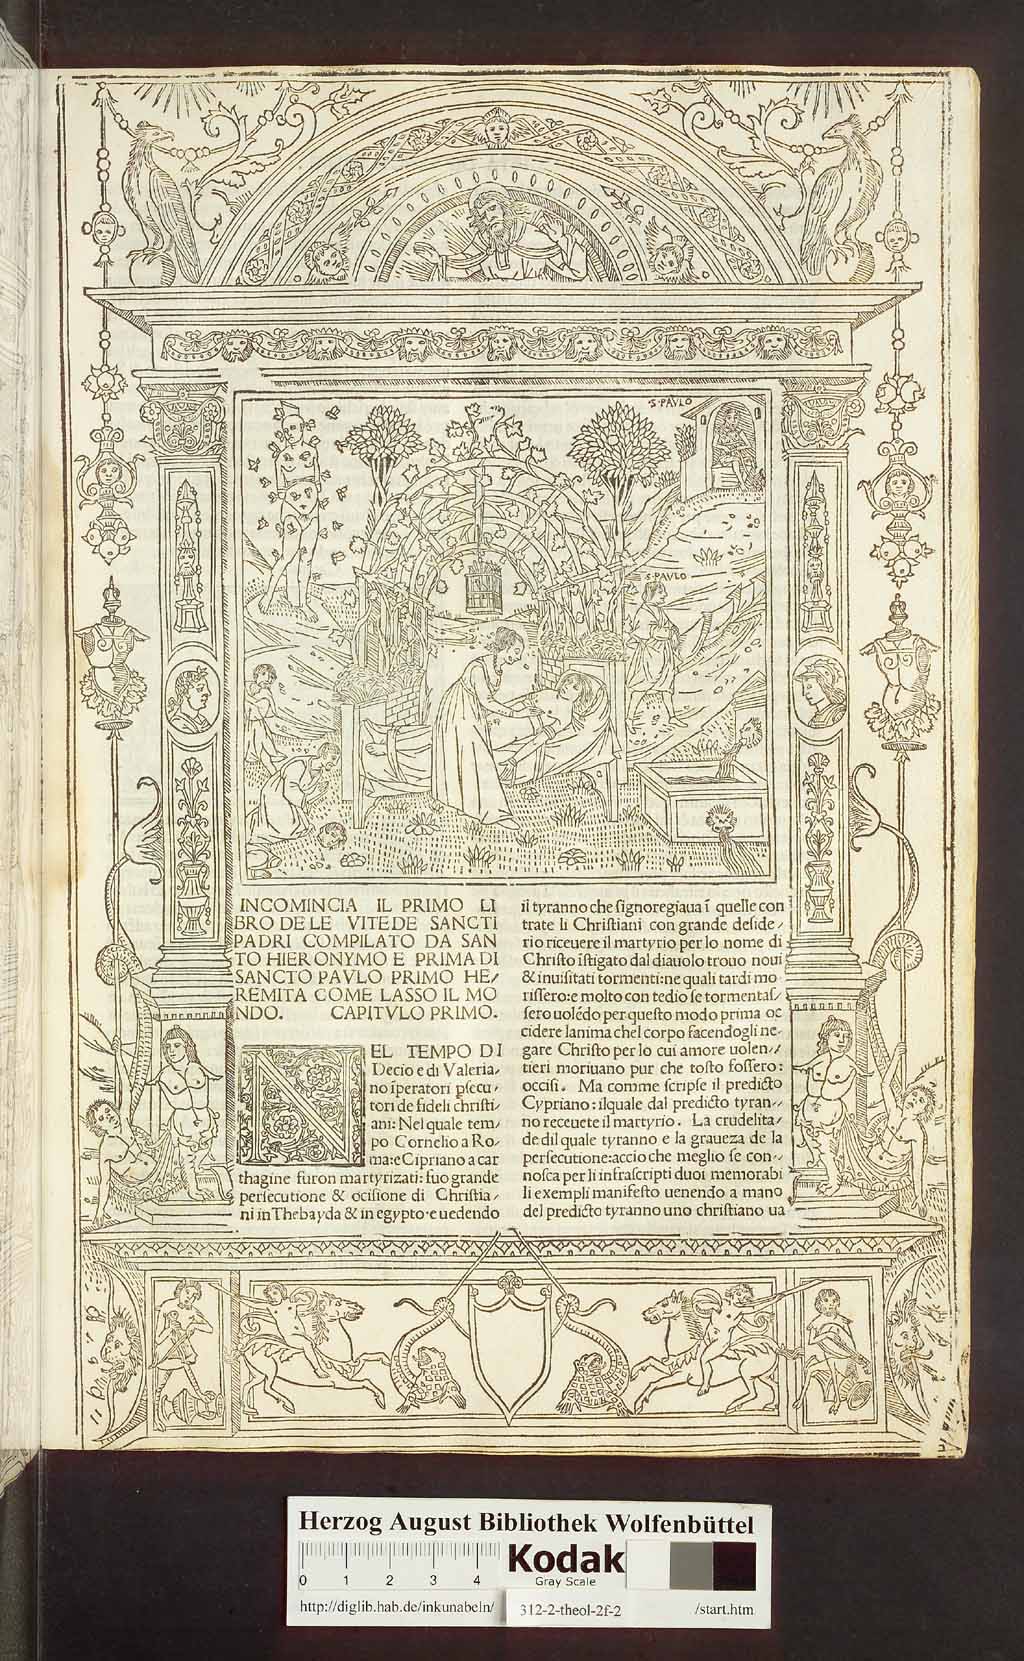 S·PAVLO
S·PAVLO
INCOMINCIA IL PRIMO LI
BRO DE LE VITE DE SANCTI
PADRI COMPILATO DA SAN
TO HIERONYMO E PRIMA DI
SANCTO PAVLO PRIMO HE/
REMITA COME LASSO IL MO
NDO. CAPITVLO PRIMO.
NEL TEMPO DI
Decio e di Valeria/
no īperatori psecu/
tori de fideli christi/
ani: Nel quale tem/
po Cornelio a Ro/
ma: e Cipriano a car
thagine furon martyrizati: fuo grande
persecutione & ocisione di Christia/
ni in Thebayda & in egypto· e uedendo
il tyranno che signoregiaua ī quelle con
trate li Christiani con grande deside/
rio riceuere il martyrio per lo nome di
Christo īstigato dal diauolo trouo noui
& inuisitati tormenti: ne quali tardi mo/
rissero: e molto con tedio se tormentas/
sero uolédo per questo modo prima oc
cidere lanima chel corpo facendogli ne/
gare Christo per lo cui amore uolen//
tieri moriuano pur che tosto fossero:
occisi. Ma comme scripse il predicto
Cypriano: ilquale dal predicto tyran//
no receuete il martyrio. La crudelita/
de dil quale tyranno e la graueza de la
persecutione: accio che meglio se con//
nosca per li infrascripti duoi memorabi
li exempli manifesto uenendo a mano
del predicto tyranno uno christiano ua
Herzog August Bibliothek Wolfenbüttel
0 1 2 3 4
Kodak
Gray Scale
http://diglib.hab.de/inkunabeln/ 312-2-theol-2f-2 /start.htm